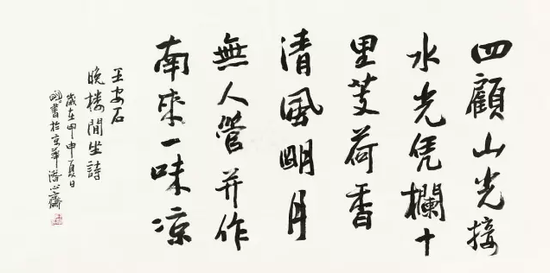 四顧山光接
水光凭欄十
里芰荷香
清風明月
無人管并作
南來一味凉
王安石
晚楼閒坐詩
歲在甲申夏日
書於京華心齋